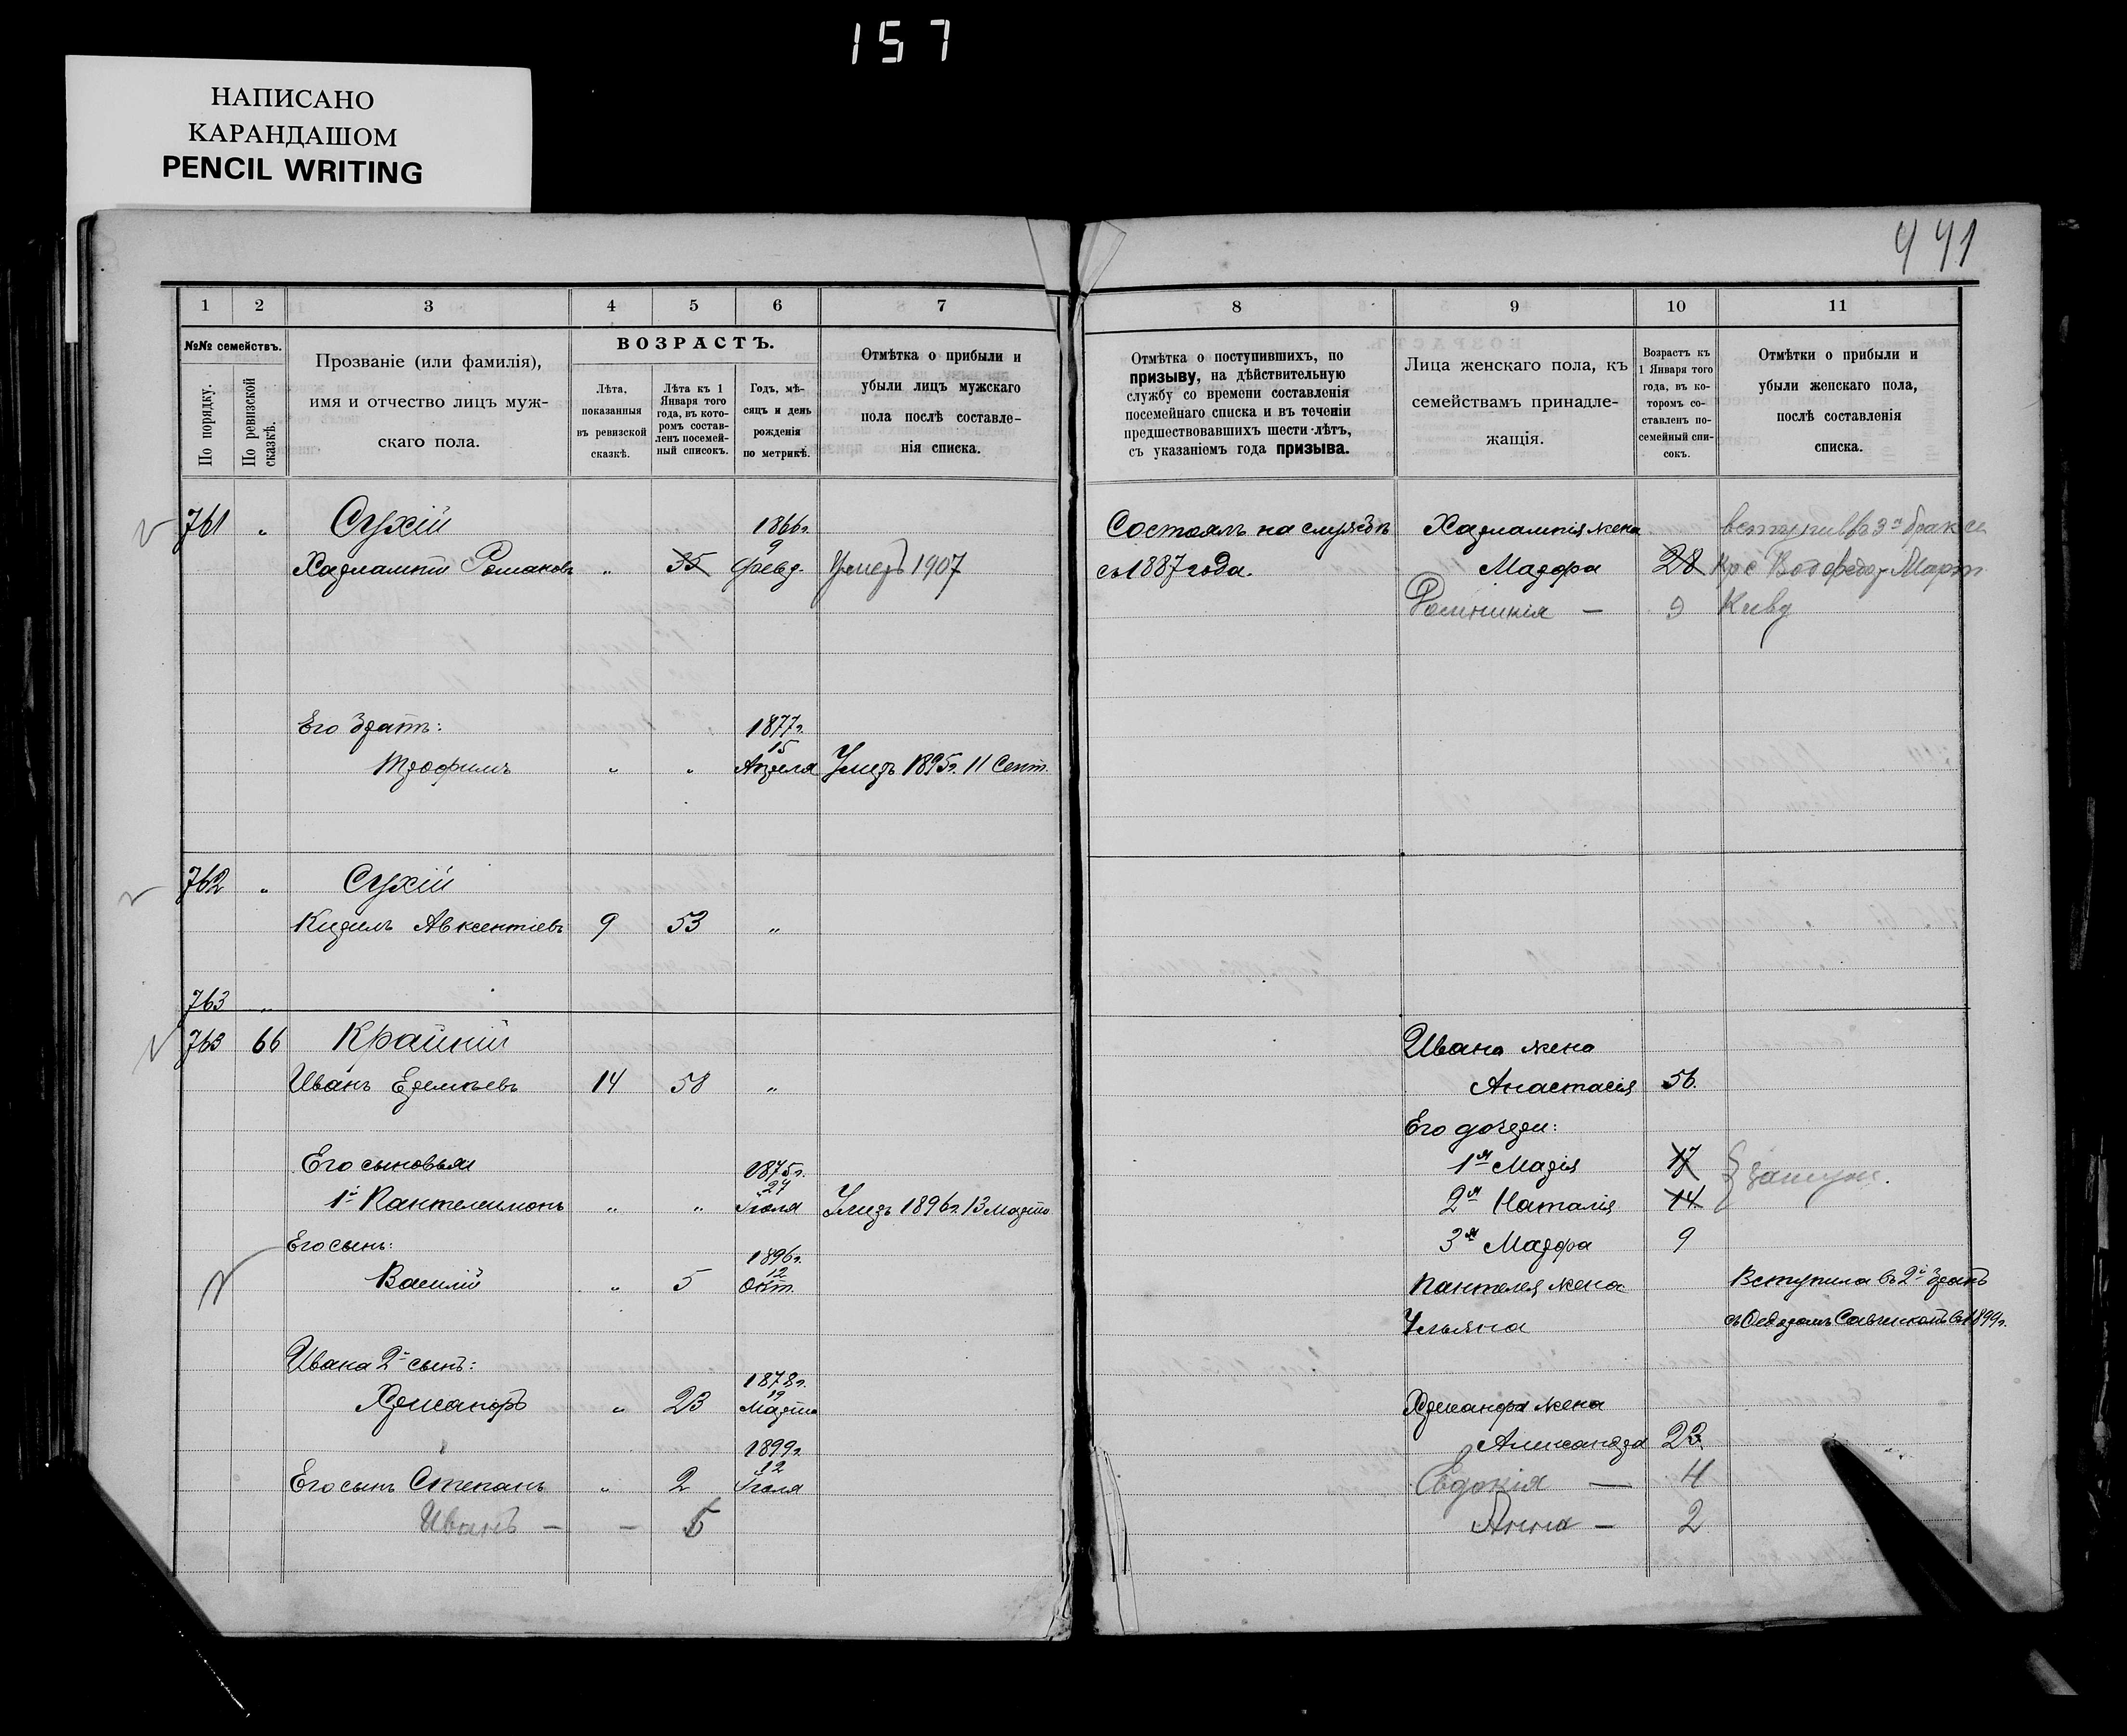 157
НАПИСАНО
КАРАНДАШОМ
PENCIL WRITING
441
1 2 3 4 5 6 7
№№ семействъ.
По порядку.
По ревизской сказкѣ.
Прозваніе (или фамилія),
имя и отчество лицъ муж-
скаго пола.
ВОЗРАСТЪ.
Лѣта,
показанныя
въ ревизской
сказкѣ.
Лѣта къ 1
Января того
года, въ кото-
ромъ состав-
ленъ посемей-
ный списокъ.
Годъ, мѣ-
сяцъ и день
рожденія
по метрикѣ.
Отмѣтка о прибыли и
убыли лицъ мужскаго
пола послѣ составле-
нія списка.
761 " Сухій 1866г.
9
Харлампій Романовъ " 35 Февр. Умеръ 1907
Его братъ: 1877г.
15
Трофимъ " " Апреля Умеръ 1895г. 11 Сент.
762 " Сухій
Кирилъ Авксентіевъ 9 53 "
763 "
763 66 Крайній
Иванъ Еремѣевъ 14 58 "
Его сыновья 1875г.
27
1й Пантелеимонъ " " Іюля Умеръ 1896г. 13 Марта
Его сынъ: 1896г.
12
Василій " 5 Окт.
Ивана 2й сынъ: 1878г.
19
Хрисанфъ " 23 Марта
1899г.
12
Его сынъ Степанъ " 2 Іюля
Иванъ — — 5
8 9 10 11
Отмѣтка о поступившихъ, по
призыву, на дѣйствительную
службу со времени составленія
посемейнаго списка и въ теченіи
предшествовавшихъ шести лѣтъ,
съ указаніемъ года призыва.
Лица женскаго пола, къ
семействамъ принадле-
жащія.
Возрастъ къ
1 Января того
года, въ ко-
торомъ со-
ставленъ по-
семейный спи-
сокъ.
Отмѣтки о прибыли и
убыли женскаго пола,
послѣ составленія
списка.
Состоялъ на службѣ Харлампія жена
съ 1887 года. Марфа 28
— 9
Ивана жена
Анастасія 56.
Его дочери:
1я Марія 17
2я Наталія 14 замуж.
3я Марфа 9
Пантелея жена Вступила въ 2й бракъ
Ульяна въ 1899г.
Хрисанфа жена
Александра 23.
Евдокія — 4
Анна — 2